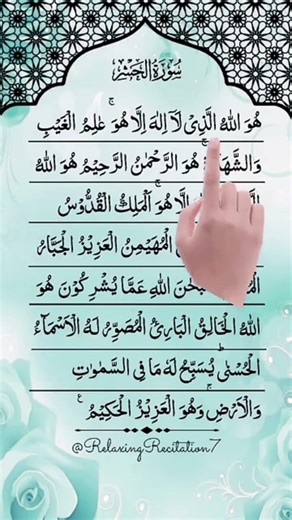 سُورَةُ الْحَشْر
هُوَ اللّٰهُ الَّذِیْ لَاۤ اِلٰهَ اِلَّا هُوَ ۚ عٰلِمُ الْغَیْبِ
وَالشَّهَا هُوَ الرَّحْمٰنُ الرَّحِیْمُ هُوَ اللّٰهُ
لَّا هُوَ ۚ اَلْمَلِكُ الْقُدُّوْسُ
الْمُهَیْمِنُ الْعَزِیْزُ الْجَبَّارُ
بْحٰنَ اللّٰهِ عَمَّا یُشْرِكُوْنَ هُوَ
اللّٰهُ الْخَالِقُ الْبَارِئُ الْمُصَوِّرُ لَهُ الْاَسْمَآءُ
الْحُسْنٰی ؕ یُسَبِّحُ لَهٗ مَا فِی السَّمٰوٰتِ
وَالْاَرْضِ ۚ وَهُوَ الْعَزِیْزُ الْحَكِیْمُ
@RelaxingRecitation7